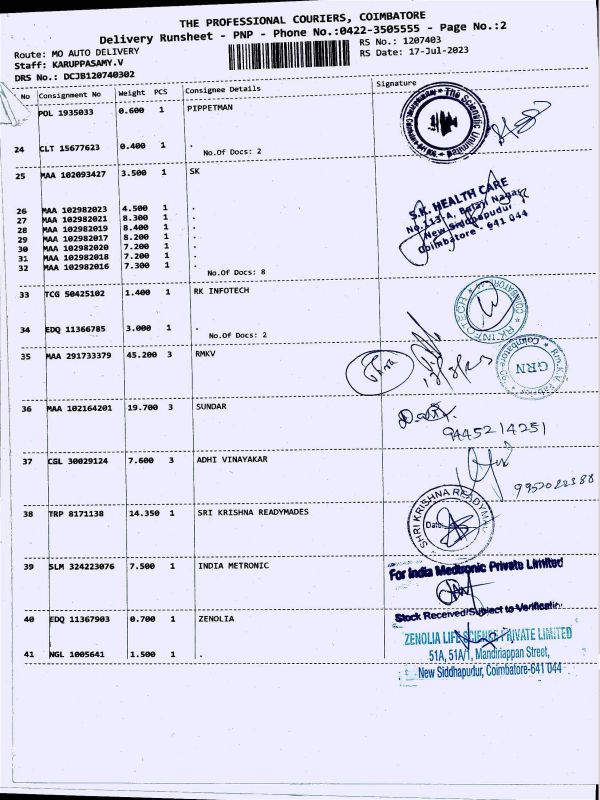 THE PROFESSIONAL COURIERS, COIMBATORE
Delivery Runsheet - PNP - Phone No.:0422-3505555 - Page No.:2
Route: MO AUTO DELIVERY
RS No.: 1207403
Staff: KARUPPASAMY.V
RS Date: 17-Jul-2023
DRS No.: DCJB120740302
No Consignment No Weight PCS Consignee Details Signature
POL 1935033 0.600 1 PIPPETMAN
The Scientific
24 CLT 15677623 0.400 1 .
No.Of Docs: 2
25 MAA 102093427 3.500 1 SK
S.K. HEALTH CARE
No.113-A, Balaji Nagar
New Siddhapudur
Coimbatore - 641 044
26 MAA 102982023 4.500 1 .
27 MAA 102982021 8.300 1 .
28 MAA 102982019 8.400 1 .
29 MAA 102982017 8.200 1 .
30 MAA 102982020 7.200 1 .
31 MAA 102982018 7.200 1 .
32 MAA 102982016 7.300 1 .
No.Of Docs: 8
33 TCG 50425102 1.400 1 RK INFOTECH
34 EDQ 11366785 3.000 1 .
No.Of Docs: 2
35 MAA 291733379 45.200 3 RMKV
GRN
36 MAA 102164201 19.700 3 SUNDAR
9445214251
37 CGL 30029124 7.600 3 ADHI VINAYAKAR
38 TRP 8171138 14.350 1 SRI KRISHNA READYMADES
SHRI KRISHNA READYMA
Date:
39 SLM 324223076 7.500 1 INDIA METRONIC
For India Medtronic Private Limited
Stock Received/Subject to Verification
40 EDQ 11367903 0.700 1 ZENOLIA
ZENOLIA LIFESCIENCE PRIVATE LIMITED
51A, 51A/1, Mandiriappan Street,
New Siddhapudur, Coimbatore-641 044
41 NGL 1005641 1.500 1 .